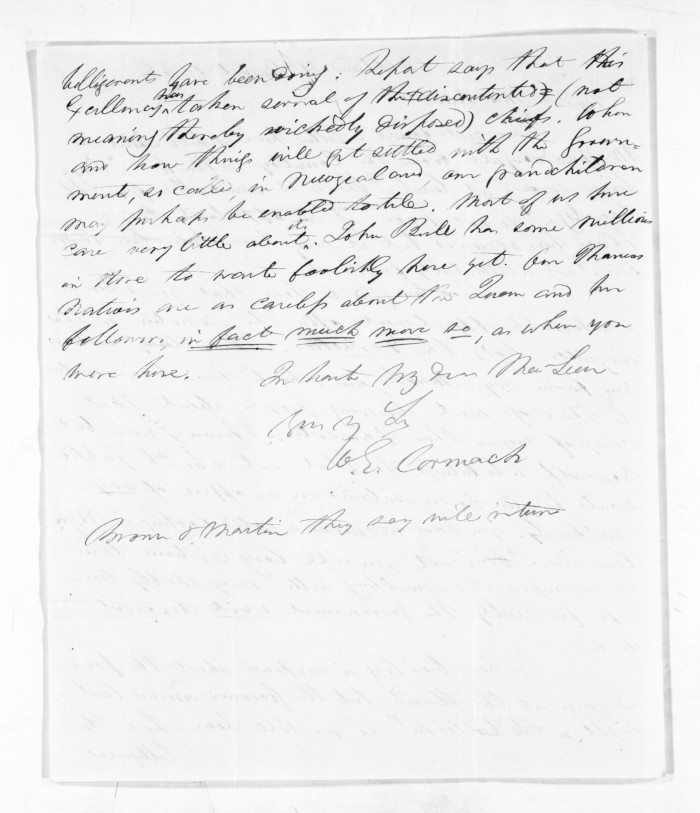 belligerents have been doing. Report says that this
Excellency has taken several of the (discontented) (not
meaning thereby wickedly disposed) chiefs. When
and how things will get settled with the Govern-
ment, as called, in Newzealand, our grandchildren
may perhaps be enabled to tell. Most of us here
care very little about it. John Bull has some millions
in store to waste foolishly here yet. Our Thames
Natives are as careless about the Queen and her
followers, in fact much more so, as when you
were here. In haste My dear MacLean
Yours Ty
W.E. Cormack
Brown & Martin they say will return